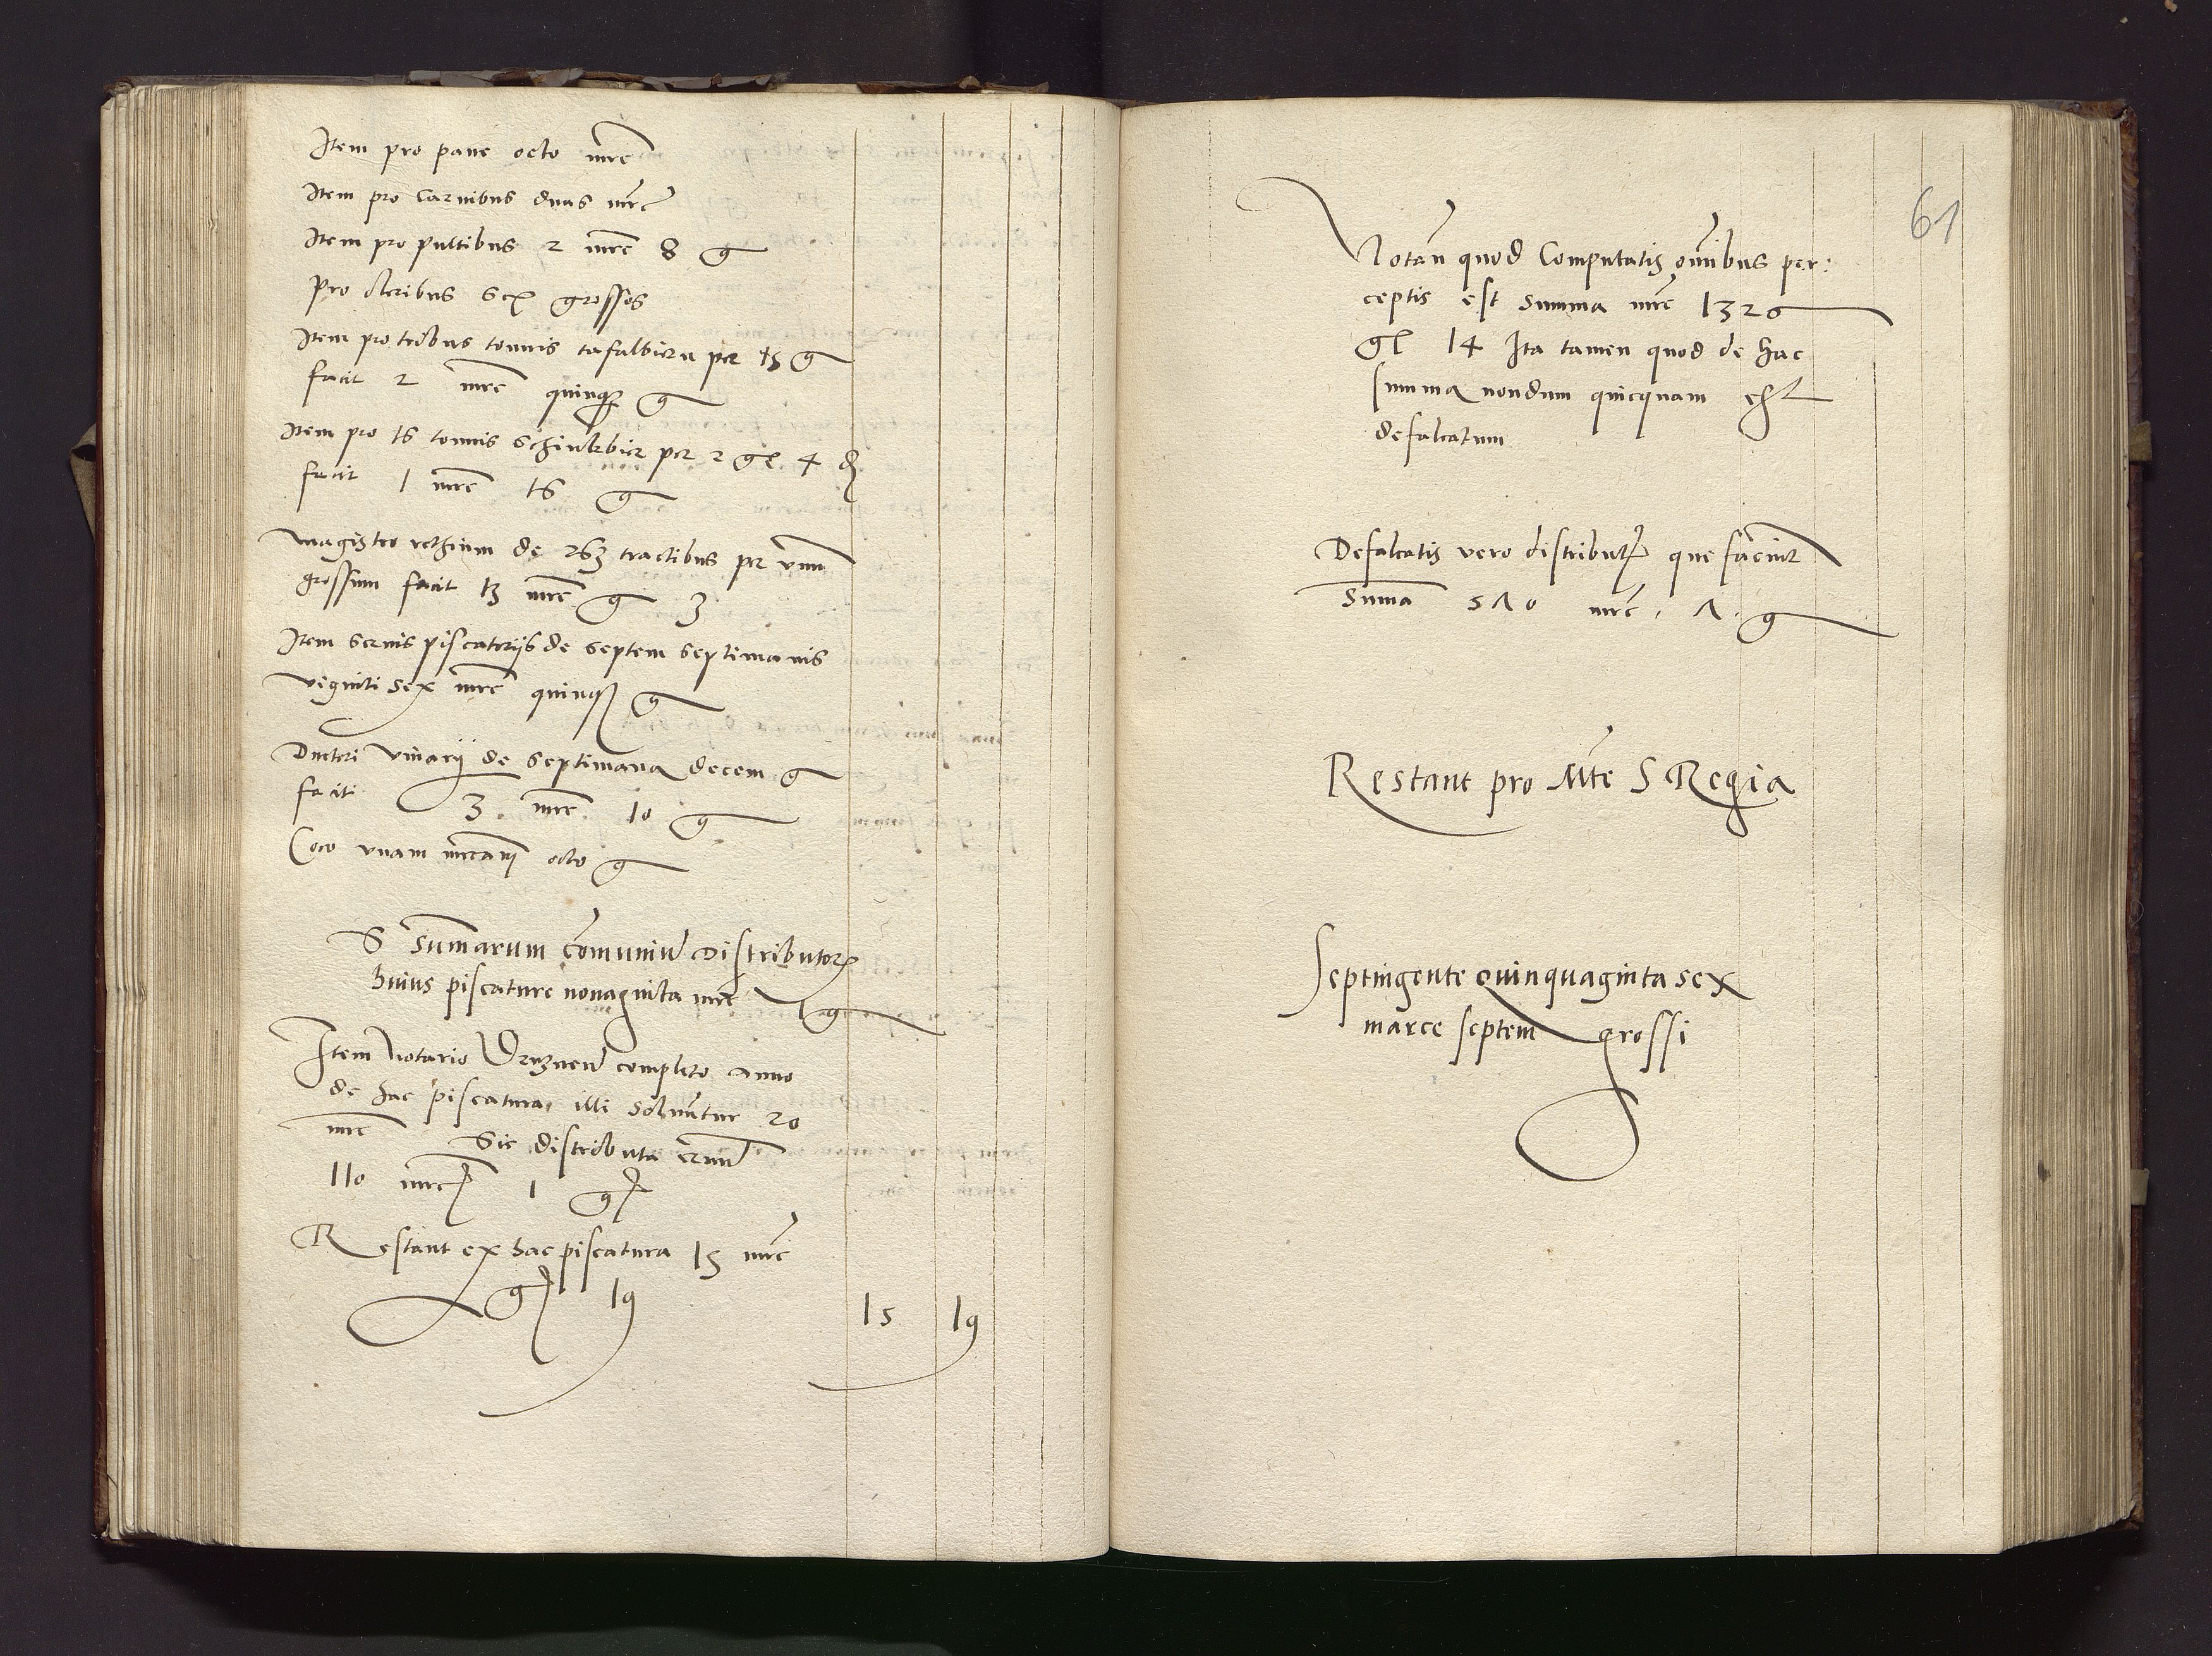 Item pro pane octo mrc
Item pro carnibus duas mrc
Item pro pultibus 2 mrc 8 g
Pro oleribus sex grossos
Item pro tribus tonnis tafalbiern per 15 g
facit 2 mrc quinque g
Item pro 16 tonnis schinkbier per 2 gr 4 d
facit 1 mrc 16 g
Magistro rethium de 263 tractibus per vnum
grossum facit 13 mrc g 3
Item seruis piscatorijs de septem septimanis
viginti sex mrc quinque g
Ductori vinarij de septimana decem g
facit 3 mrc 10 g
Coco vnam mrcam octo g
S Summarum comuniu distributor
huius piscature nonaginta mrc 1 g
Item Notario completo anno
de hac piscatura illi soluuntur 20
mrc Sic distributa erunt
110 mrc 1 gr
Restant ex hac piscatura 15 mrc
gr 19
15 19
61
Notan quod Computatis omnibus per:
ceptis est summa mrc 1326
gr 14 Ita tamen quod de hac
summa nondum quicquam est
defalcatum
Defalcatis vero distributis que faciunt
Summa 570 mrc . 7 . g
Restant pro Mte S Regia
Septingente quinquaginta sex
marce septem grossi